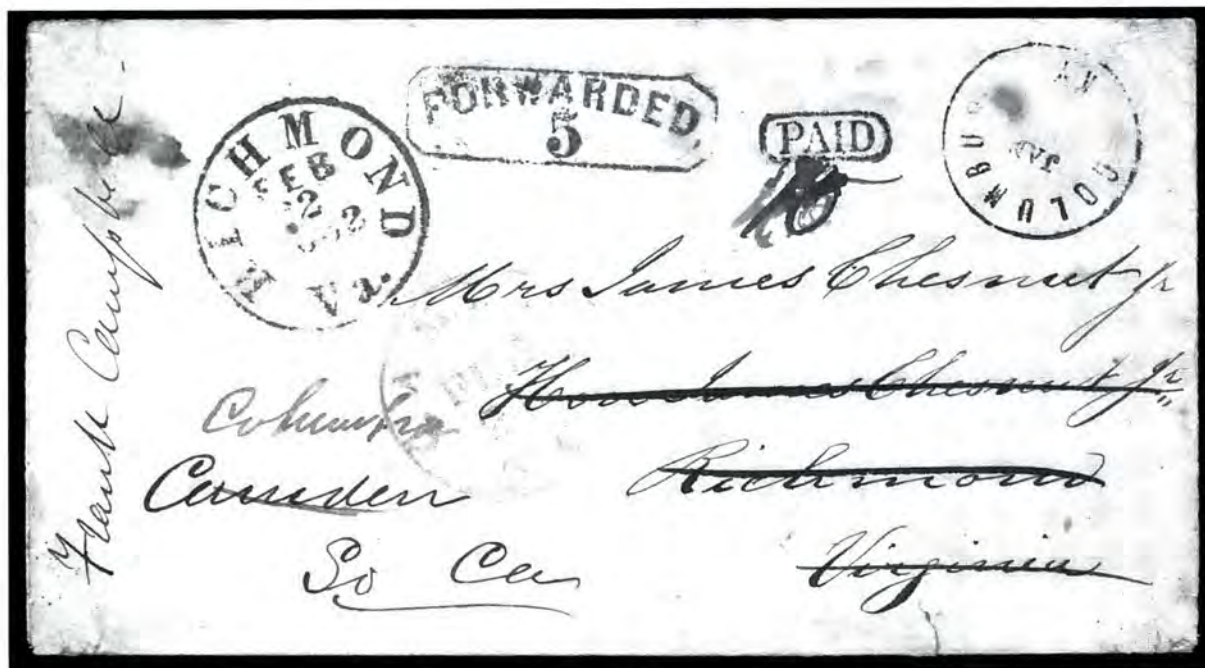 Frank Campbell
RICHMOND
FEB
Va.
FORWARDED
5
PAID
10
COLUMBUS
KY
JAN
Mrs James Chesnut jr
Hon James Chesnut jr
Columbia
Camden
Richmond
So Ca
Virginia